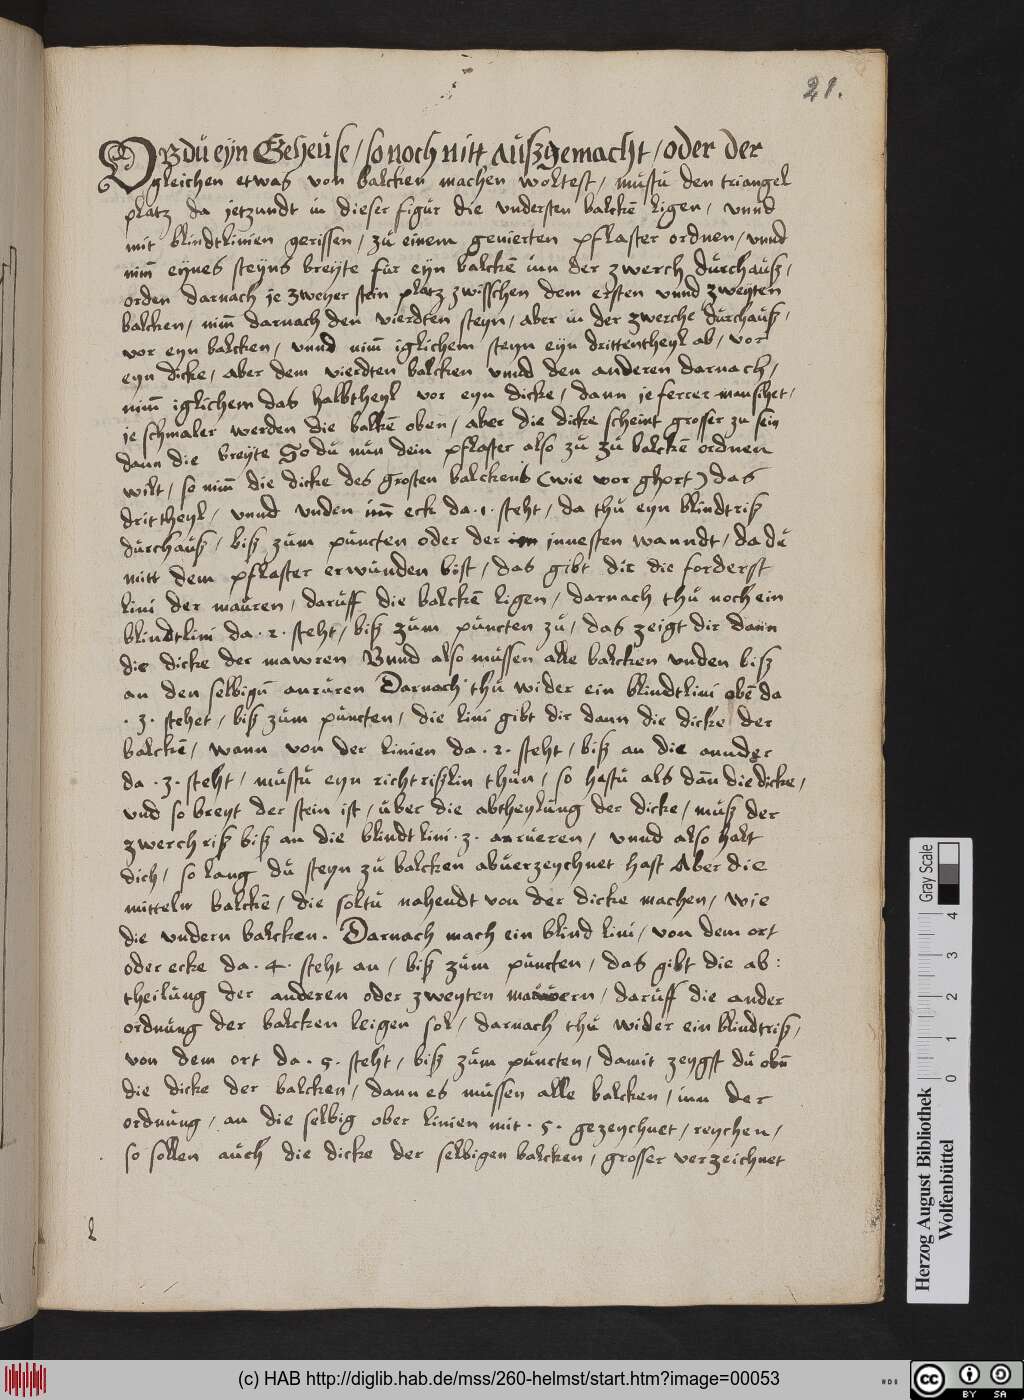 21.
OB dü eyn Geheüse / so noch nitt aüßgemacht / oder der
gleichen etwas von balcken machen woltest / müstü den triangel
platz da jetzundt in dieser figür die vndersten balckē ligen / vnnd
mit blindtlinien gerissen / zü einem genierten pflaster ordnen / vnnd
nim̄ eÿnes steÿns breÿte für eyn balckē inn der zwerch dürchaüß /
orden darnach je zweyer stein platz zwisschen dem ersten vnnd zweyten
balcken / nim̄ darnach den vierdten steyn / aber in der zwerche dürchaüß /
vor eyn balcken / vnnd nim̄ iglichem steyn eyn drittentheyl ab / vor
eyn dicke / aber dem vierdten balcken vnnd den anderen darnach /
nim̄ iglichem das halbtheyl vor eyn dicke / dann je ferrer man sihet /
je schmaler werden die balkē oben / aber die dicke scheint grosser zu sein
dann die breyte So dü nün dein pflaster also zü zü balckē ordnen
wilt / so nim̄ die dicke des grosten balckens (wie vor ghort) das
drittheyl / vnnd vnden im̄ eck da .1. steht / da thü eyn blindtriß
dürchaüß / biß züm püncten oder der innesten wanndt / da dü
mitt dem pflaster erwünden bist / das gibt dir die forderst
lini der maüren / darüff die balckē ligen / darnach thü noch ein
blindtlini da .2. steht / biß züm püncten zü / das zeigt dir dann
die dicke der mawren Vnnd also müssen alle balcken vnden biß
an den selbign̄ anrüren Darnach thü wider ein blindtlini obē da
.3. stehet / biß züm püncten / die lini gibt dir dann die dicke der
balckē / wann von der linien da .2. steht / biß an die annder
da .3. steht / müstü eyn richtrißlin thün / so hastü als dan̄ die dicke /
vnd so breyt der stein ist / über die abtheylüng der dicke / müß der
zwerchriß biß an die blindtlini .3. anrüeren / vnnd also halt
dich / so lang dü steyn zü balcken abüerzeychnet hast Aber die
mitteln balckē / die soltü nahendt von der dicke machen / wie
die vndern balcken. Darnach mach ein blind lini / von dem ort
oder ecke da .4. steht an / biß züm püncten / das gibt die ab:
theilüng der anderen oder zweyten maüern / darüff die ander
ordnüng der balcken leigen sol / darnach thü wider ein blindtriß /
von dem ort da .5. steht / biß züm püncten / damit zeygst dü obn̄
die dicke der balcken / dann es müssen alle balcken / inn der
ordnüng / an die selbig ober linien mit .5. gezeychnet / reychen /
so sollen aüch die dicke der selbigen balcken / grosser verzeichnet
Herzog August Bibliothek
Wolfenbüttel
0 1 2 3 4
Gray Scale
(c) HAB http://diglib.hab.de/mss/260-helmst/start.htm?image=00053
cc BY SA